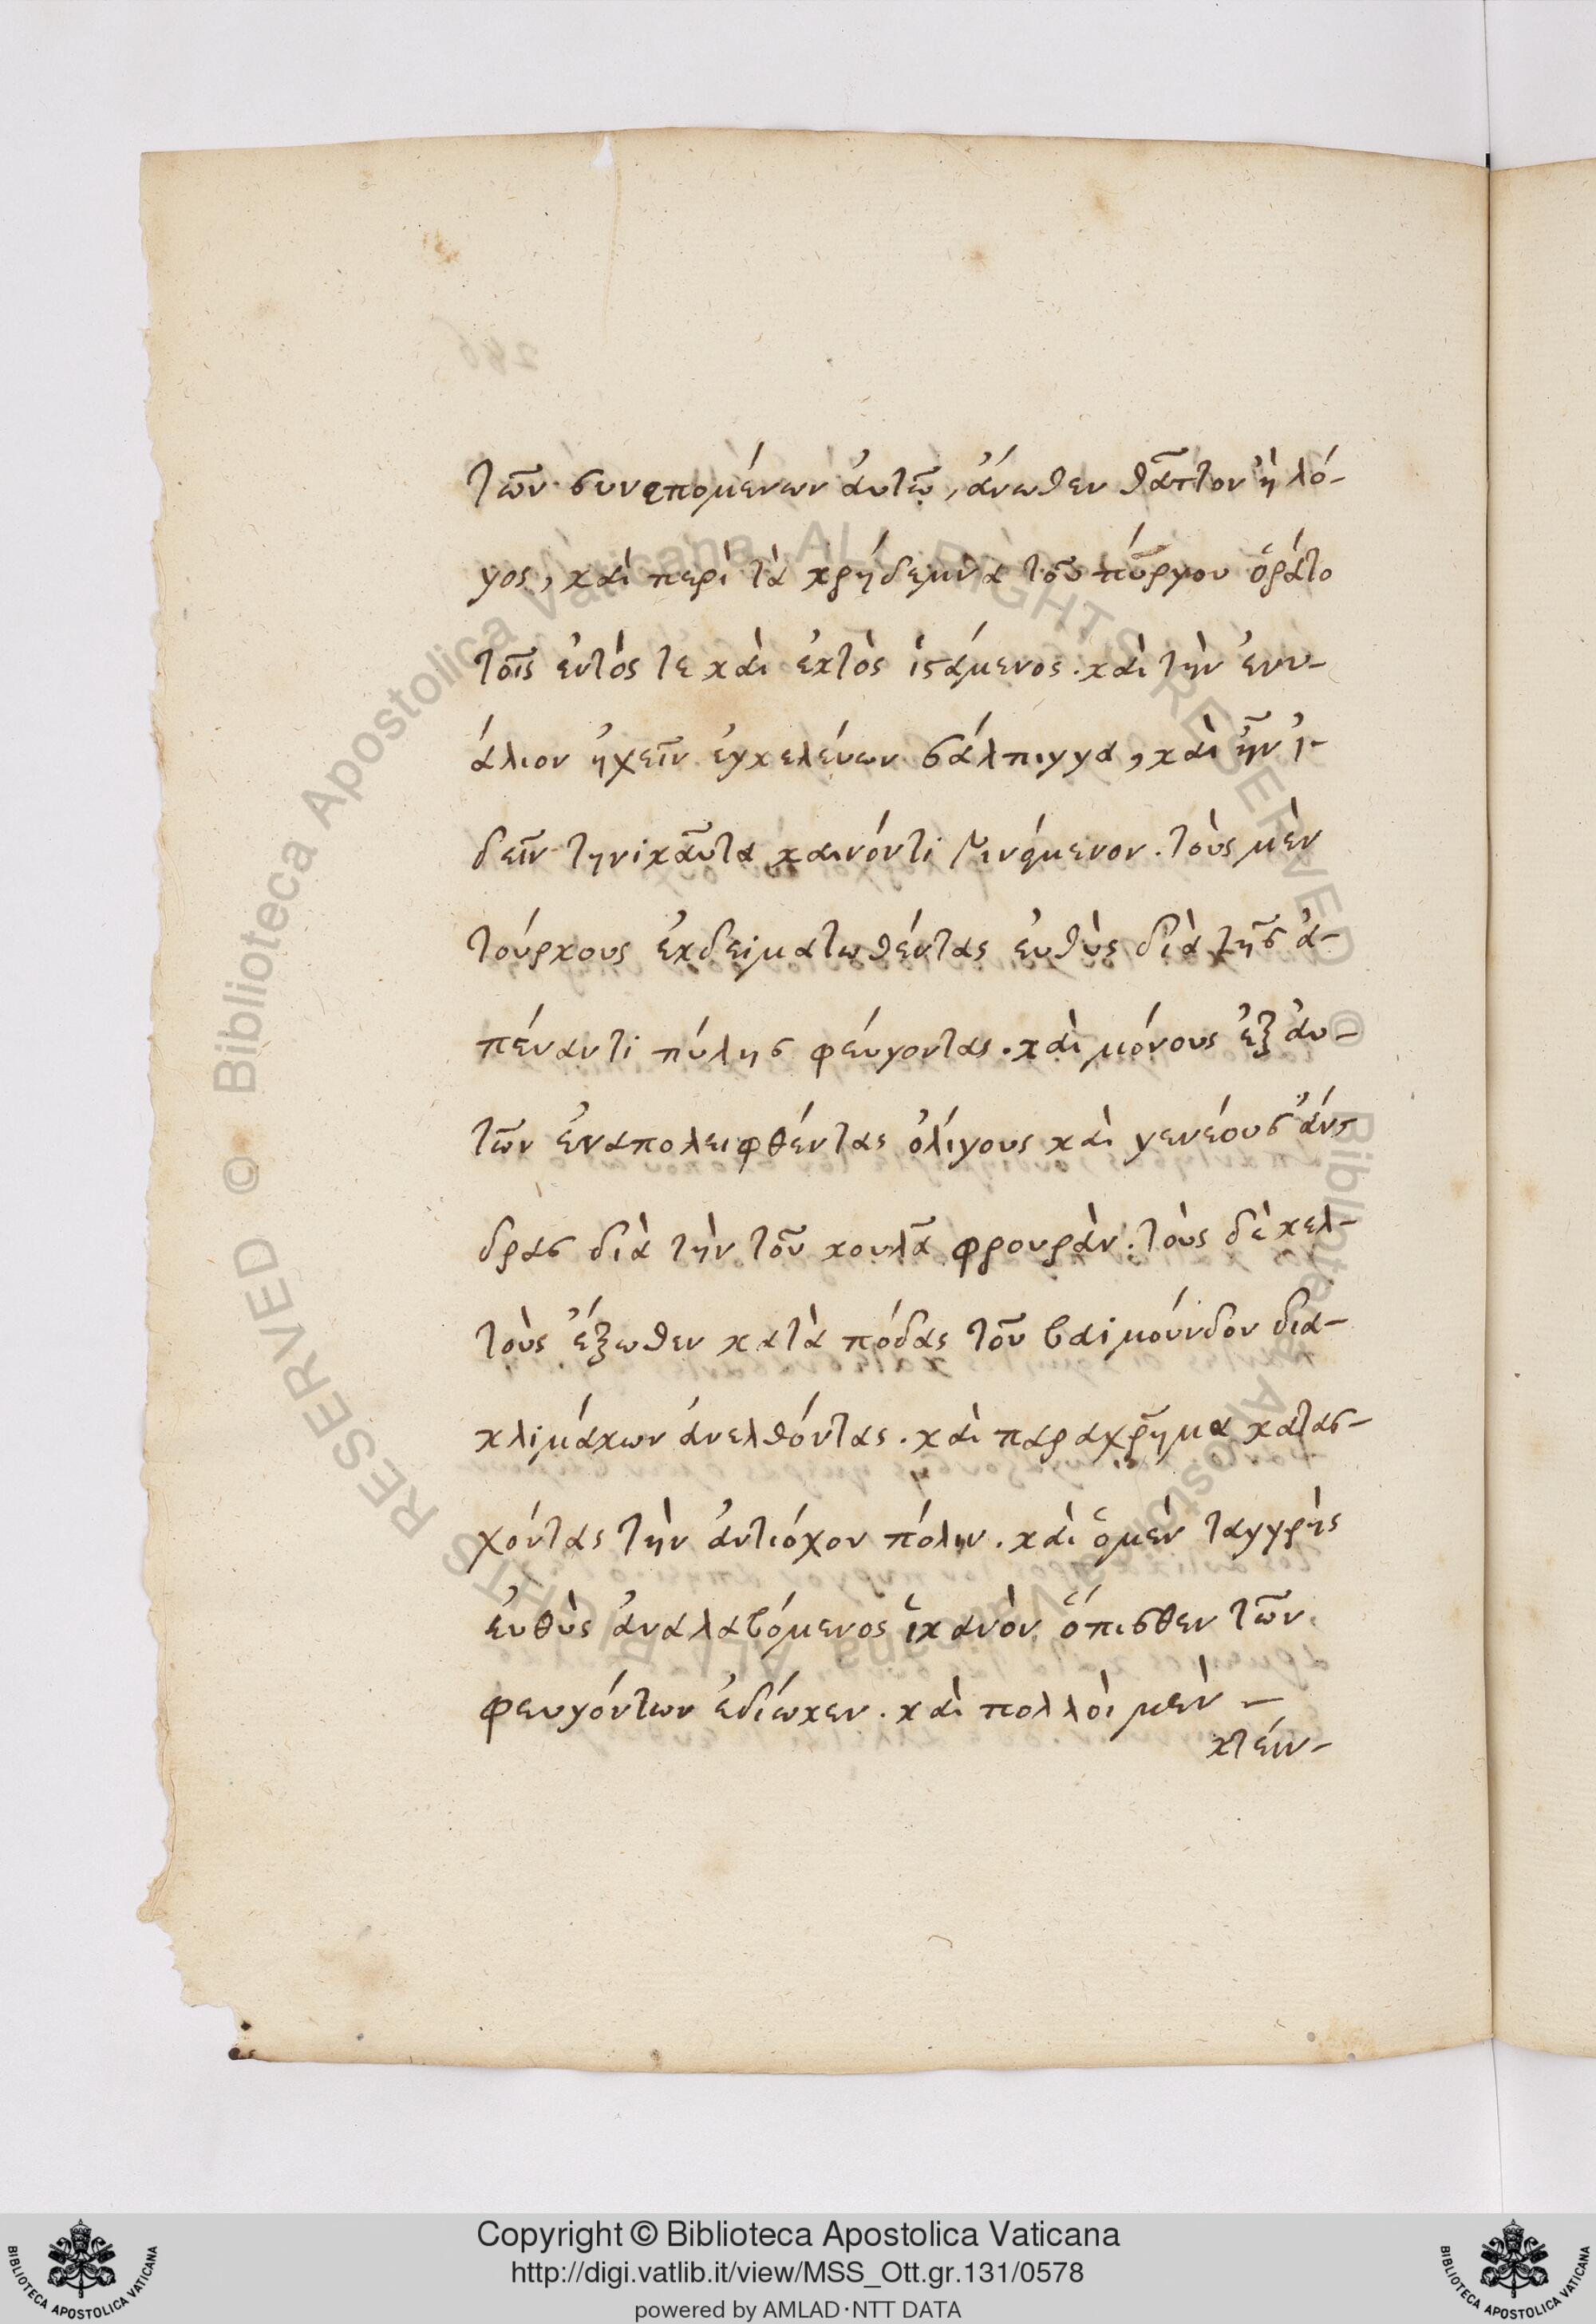 τῶν συνεπομένων ἀυτῶ, ἄνωθεν θᾶττον ἢ λό-
γος, καὶ περὶ τὰ κρήδεμνα τοῦ πύργου ὁράτο
τοῖς ἐντός τε καὶ ἐκτὸς ἱστάμενος. καὶ τὴν ἐνυ-
άλιον ἠχεῖν ἐγκελέυων σάλπιγγα, καὶ ἦν ἰ-
δεῖν τηνικᾶυτα καινόντι γινόμενον. τοὺς μὲν
τούρκους ἐκδειματωθέντας ἐυθὺς διὰ τῆς ἀ-
πέναντι πύλης φέυγοντας. καὶ μόνους ἐξ ἀυ-
τῶν ἐναπολειφθέντας ὀλίγους καὶ γενέους ἄν-
δρας διὰ τὴν τοῦ κουλᾶ φρουράν. τοὺς δὲ κελ-
τοὺς ἔξωθεν κατὰ πόδας τοῦ βαϊμούνδου δια-
κλιμάκων ἀνελθόντας. καὶ παραχρῆμα κατασ-
χόντας τὴν ἀντιόχου πόλιν. καὶ ὁμὲν ταγγρὴς
ἐυθὺς ἀναλαβόμενος ἱκανὸν ὄπισθεν τῶν
φευγόντων ἐδίωκεν. καὶ πολλοὶ μὲν -
κτέιν-
Copyright © Biblioteca Apostolica Vaticana
http://digi.vatlib.it/view/MSS_Ott.gr.131/0578
powered by AMLAD·NTT DATA